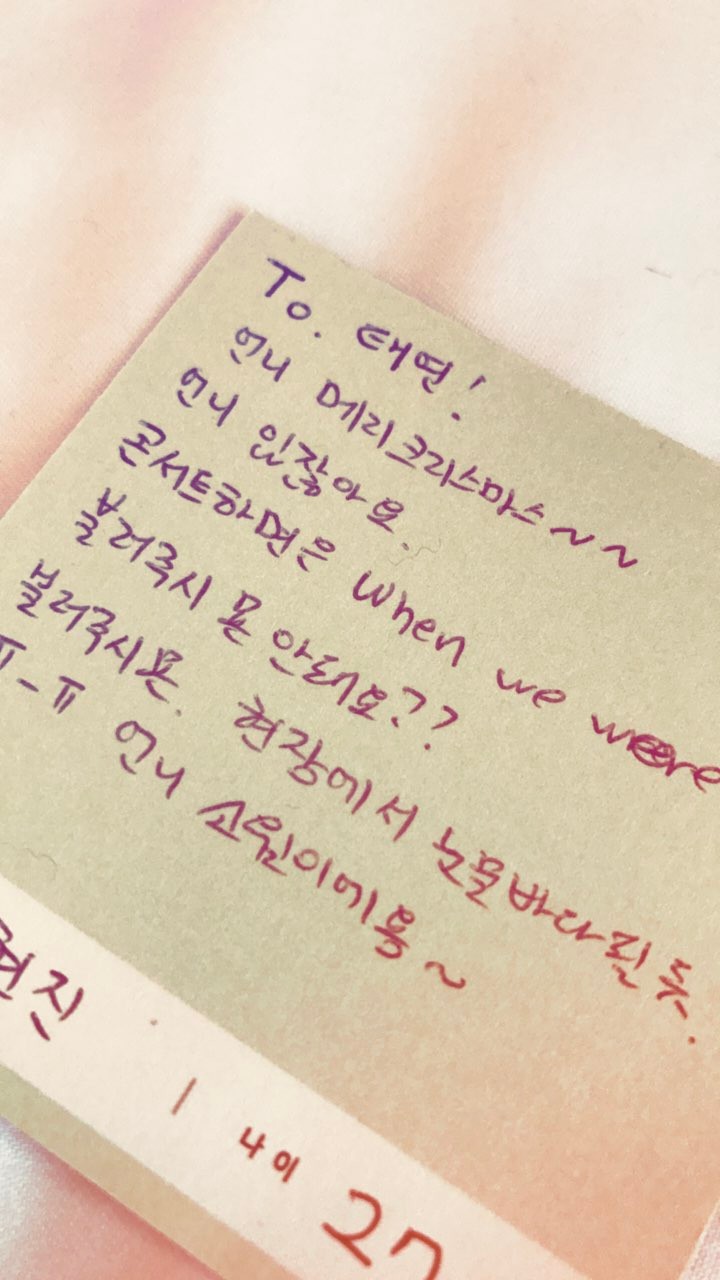 To. 태연!
언니 메리크리스마스~~
언니 있잖아요.
콘서트하면은 When we were
불러주시면 안돼요??
불러주시면. 현장에서 눈물바다될 듯.
ㅠ-ㅠ 언니 소원이에용~
현진 | 나이 27